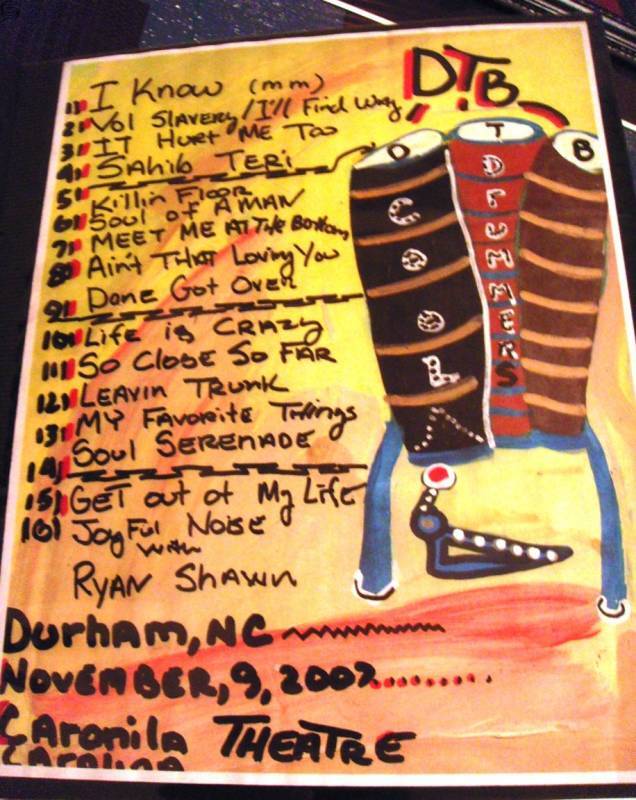 DTB
1) I Know (mm)
2) Vol Slavery/I'll Find Way
3) IT Hurt ME Too
4) Sahib TERi
5) Killin Floor
6) Soul of A MAN
7) MEET ME AT The Bottom
8) Ain't THAT Loving You
9) Done Got Over
10) Life is CRAZY
11) SO Close So FAR
12) LEAVIN TRUNK
13) MY FAVORiTE THings
14) Soul SERENADE
15) GET out of My LiFE
16) Joy Ful NoiSE
with
RYAN SHAWN
Durham, NC
NOVEMBER, 9, 2007
CAronila THEATRE
CArolina
D T B
COOL
DrUMMERS